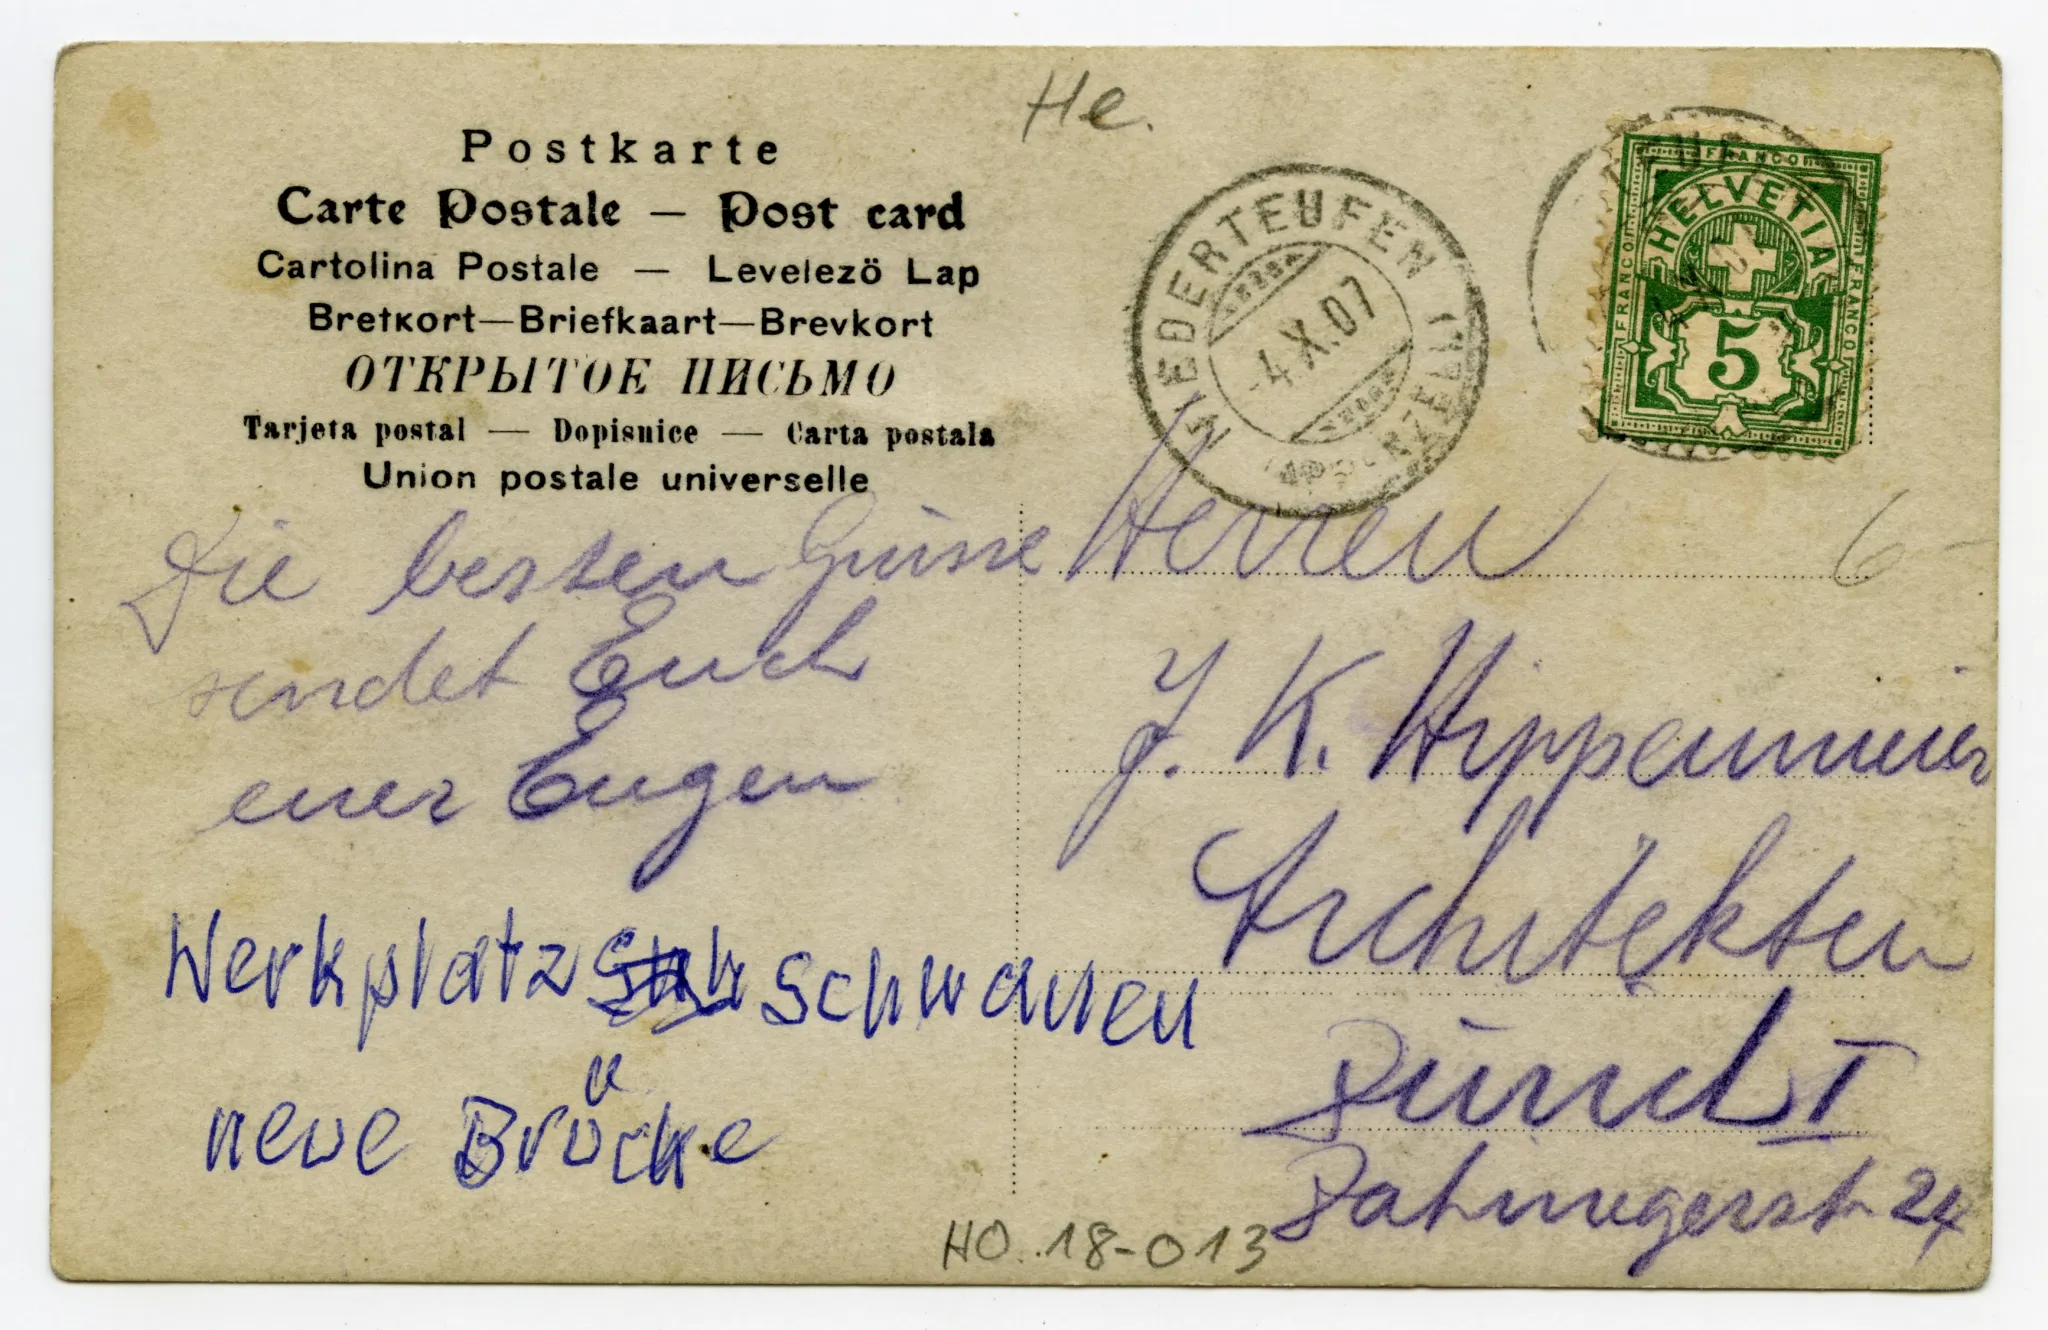 He.
Postkarte
Carte Postale — Post card
Cartolina Postale — Levelezö Lap
Bretkort—Briefkaart—Brevkort
ОТКРЫТОЕ ПИСЬМО
Tarjeta postal — Dopisnice — Carta postala
Union postale universelle
NIEDERTEUFEN (APPENZELL)
-4.X.07
FRANCO
FRANCO
FRANCO
HELVETIA
5
Die besten Grüsse
sendet Euch
euer Eugen
Werkplatz Schwanen
neue Brücke
Herren
6-
J. K. Hippenmeier
Architekten
Zürich I
24
HO.18-013